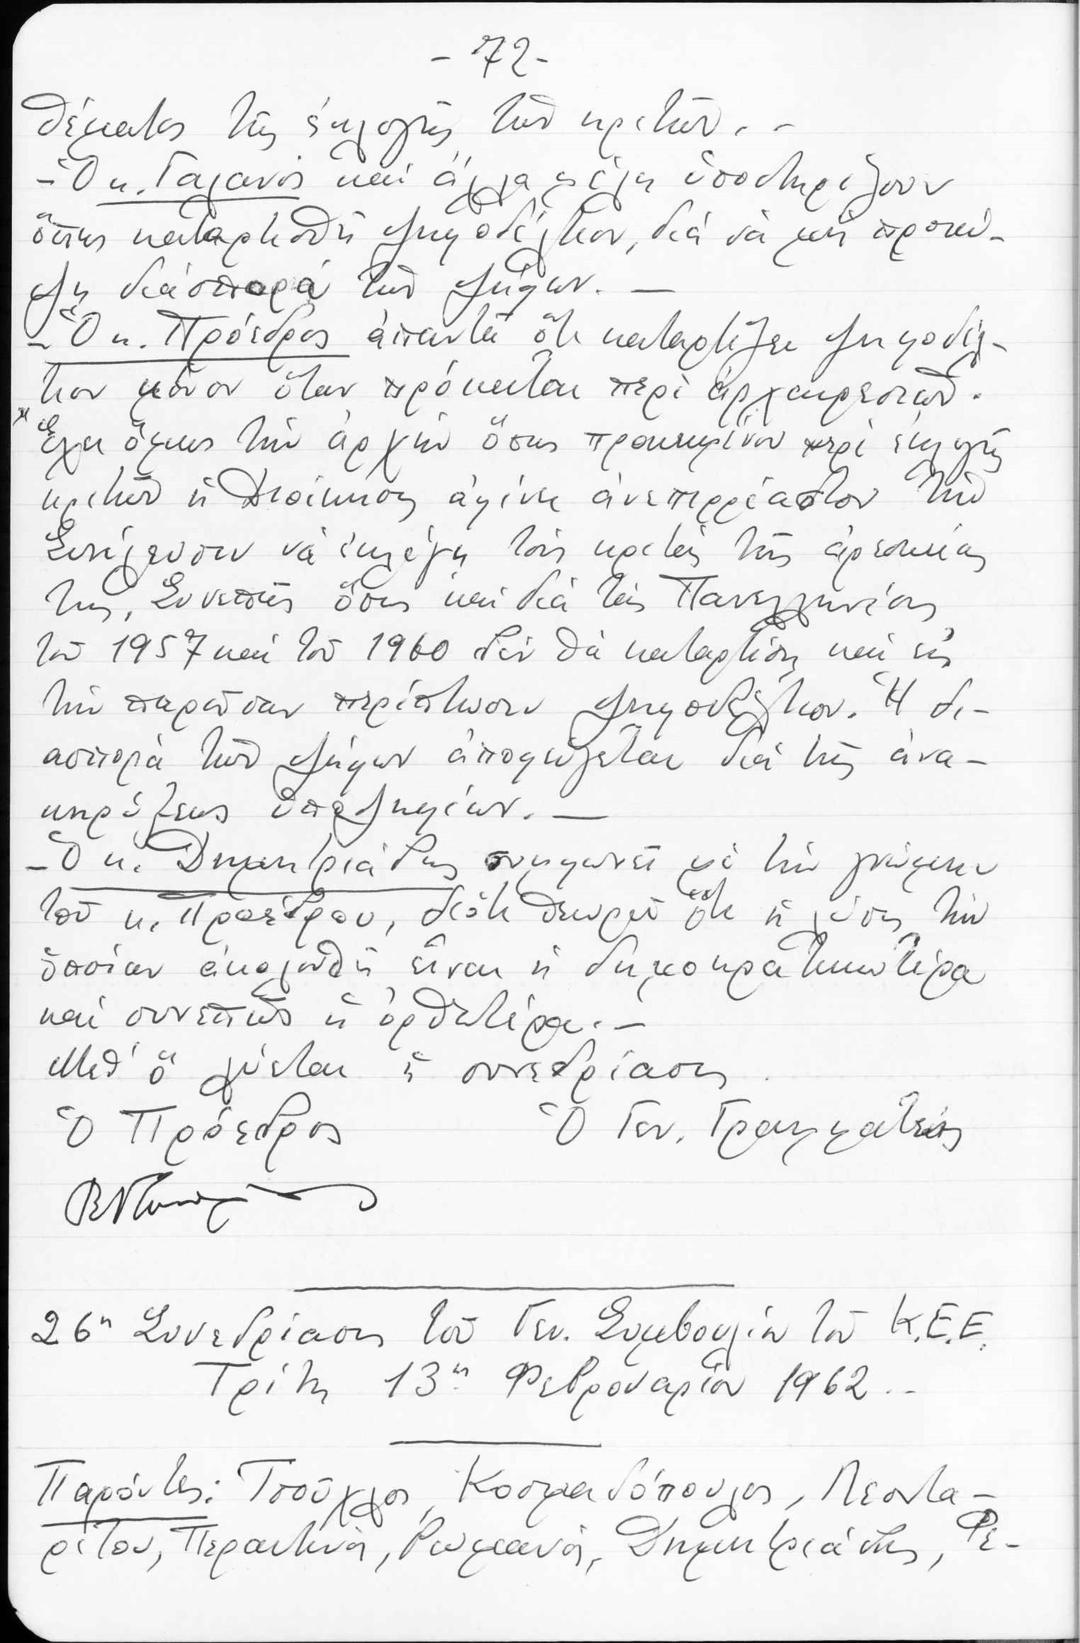 - 72 -
θέματος τῆς ἐκλογῆς τῶν κριτῶν. -
- Ὁ κ. Γαλανός καί ἄλλα μέλη ὑποστηρίζουν
ὅπως καταρτισθῆ ψηφοδέλτιον, διά νά μή προκύ-
ψη διάσπορά τῶν ψήφων. —
- Ὁ κ. Πρόεδρος ἀπαντᾶ ὅτι καταρτίζει ψηφοδέλ-
τιον μόνον ὅταν πρόκειται περί ἀρχαιρεσιῶν.
Ἔχει ὅμως τήν ἀρχήν ὅπως προκειμένου περί ἐκλογῆς
κριτῶν ἡ Διοίκησις ἀφίνει ἀνεπηρρέαστον τήν
Συνέλευσιν νά ἐκλέγη τούς κριτάς τῆς ἀρεσκείας
της, Συνεπῶς ὅπως καί διά τάς Πανελληνίους
τοῦ 1957 καί τοῦ 1960 δέν θά καταρτίση καί εἰς
τήν παροῦσαν περίπτωσιν ψηφοδέλτιον. Ἡ δι-
ασπορά τῶν ψήφων ἀποφεύγεται διά τῆς ἀνα-
κηρύξεως ὑποψηφίων. —
- Ὁ κ. Δημητριάδης συμφωνεῖ μέ τήν γνώμην
τοῦ κ. Προέδρου, διότι θεωρεῖ ὅτι ἡ λύσις τήν
ὁποίαν ἀκολουθῆ εἶναι ἡ δημοκρατικωτέρα
καί συνεπῶς ἡ ὀρθωτέρα. -
Μεθ' ὅ λύεται ἡ συνεδρίασις
Ὁ Πρόεδρος Ὁ Γεν. Γραμματεύς
26η Συνεδρίασις τοῦ Γεν. Συμβουλίου τοῦ Κ.Ε.Ε.
Τρίτη 13η Φεβρουαρίου 1962 ..
Παρόντες: Τσοῦχλος, Κοσμαδόπουλος, Λεοντα-
ρίτου, Περαντινός, Ρωμανός, Δημητριάδης, Φε-